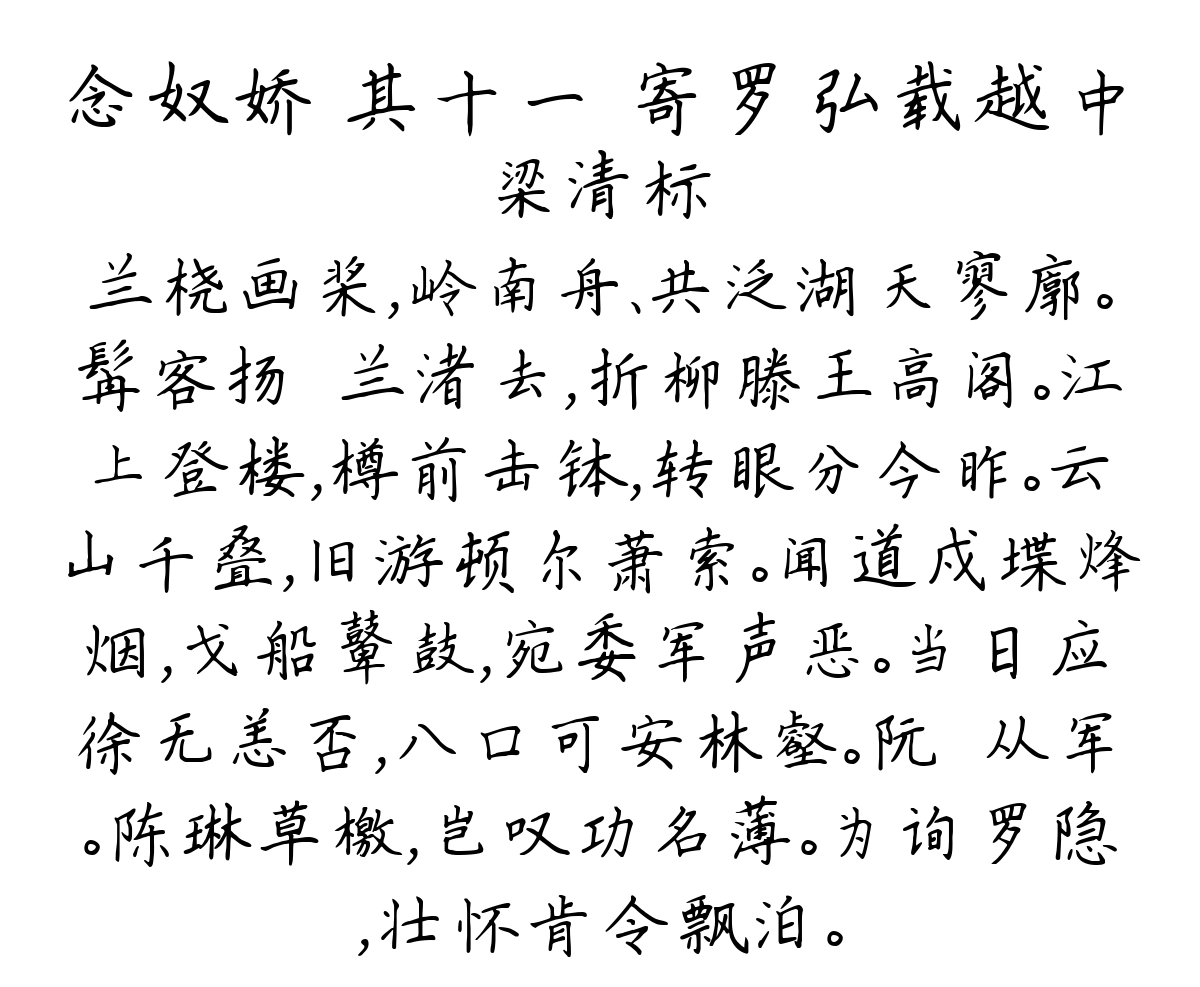 念奴娇 其十一 寄罗弘载越中
梁清标
兰桡画桨,岭南舟、共泛湖天寥廓。
髯客扬 兰渚去,折柳滕王高阁。江
上登楼,樽前击钵,转眼分今昨。云
山千叠,旧游顿尔萧索。闻道戍堞烽
烟,戈船鼙鼓,宛委军声恶。当日应
徐无恙否,八口可安林壑。阮 从军
。陈琳草檄,岂叹功名薄。为询罗隐
,壮怀肯令飘泊。